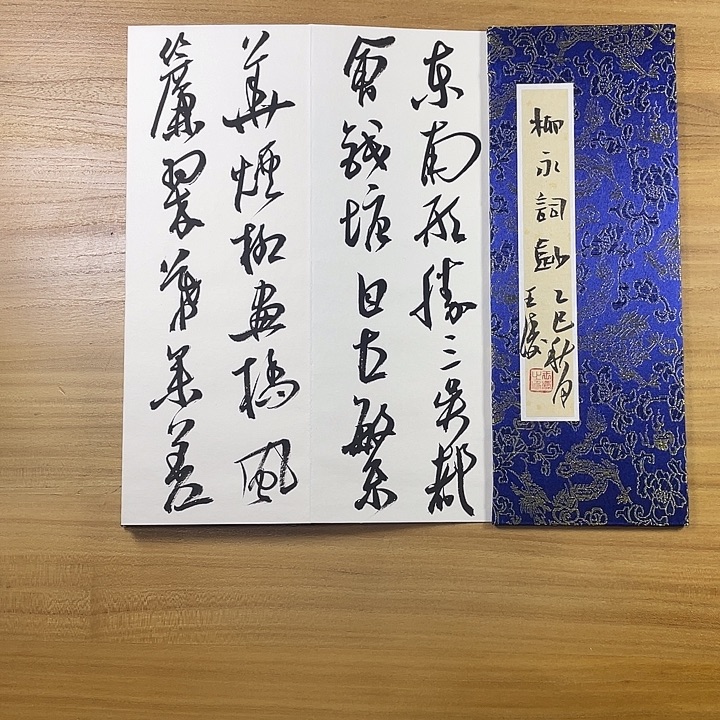 柳永詞鈔
乙巳秋月
王
東南形勝三吳都
會錢塘自古繁
華煙柳畫橋風
簾翠幕參差